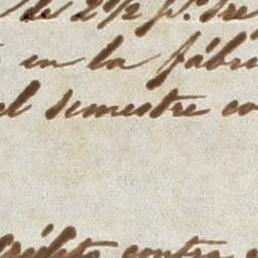 de 2½ p.% s
en la fábri
el semestre co
édito contra